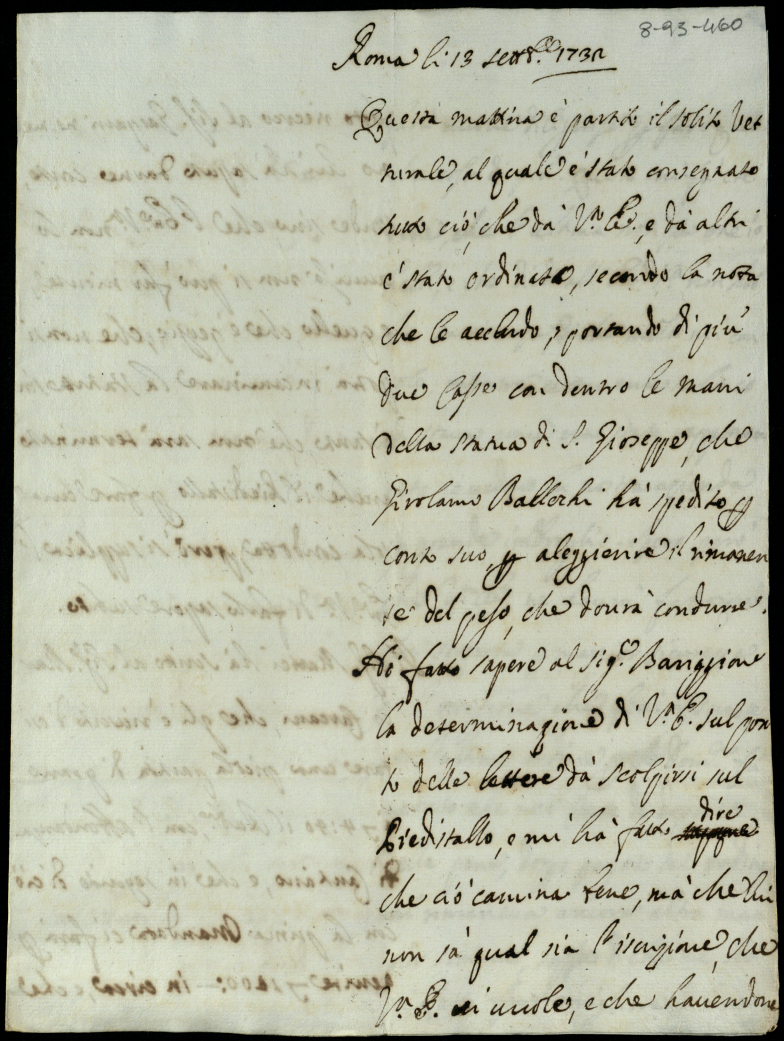 8-93-460
Roma li 13 settb.re 1732
Questa mattina è partito il solito Vet
turale, al quale è stato consegnato
tutto ciò, che da V.a E., e da altri
è stato ordinato, secondo la nota
che le accludo, portando di più
due casse con dentro le mani
della statua di S. Gioseppe, che
Girolamo Ballerini hà spedito p
conto suo, p aleggierire il rimanen
te del peso, che dourà condurre.
Hò fatto sapere al Sig.e Bariggioni
la determinazione di V.a E. sul pon
to delle lettere da scolpirsi sul
Piedistallo, e mi hà fatto dire
che ciò camina bene, mà che lui
non sà qual sia l'iscrizione, che
V.a E. ci uuole, e che hauendone